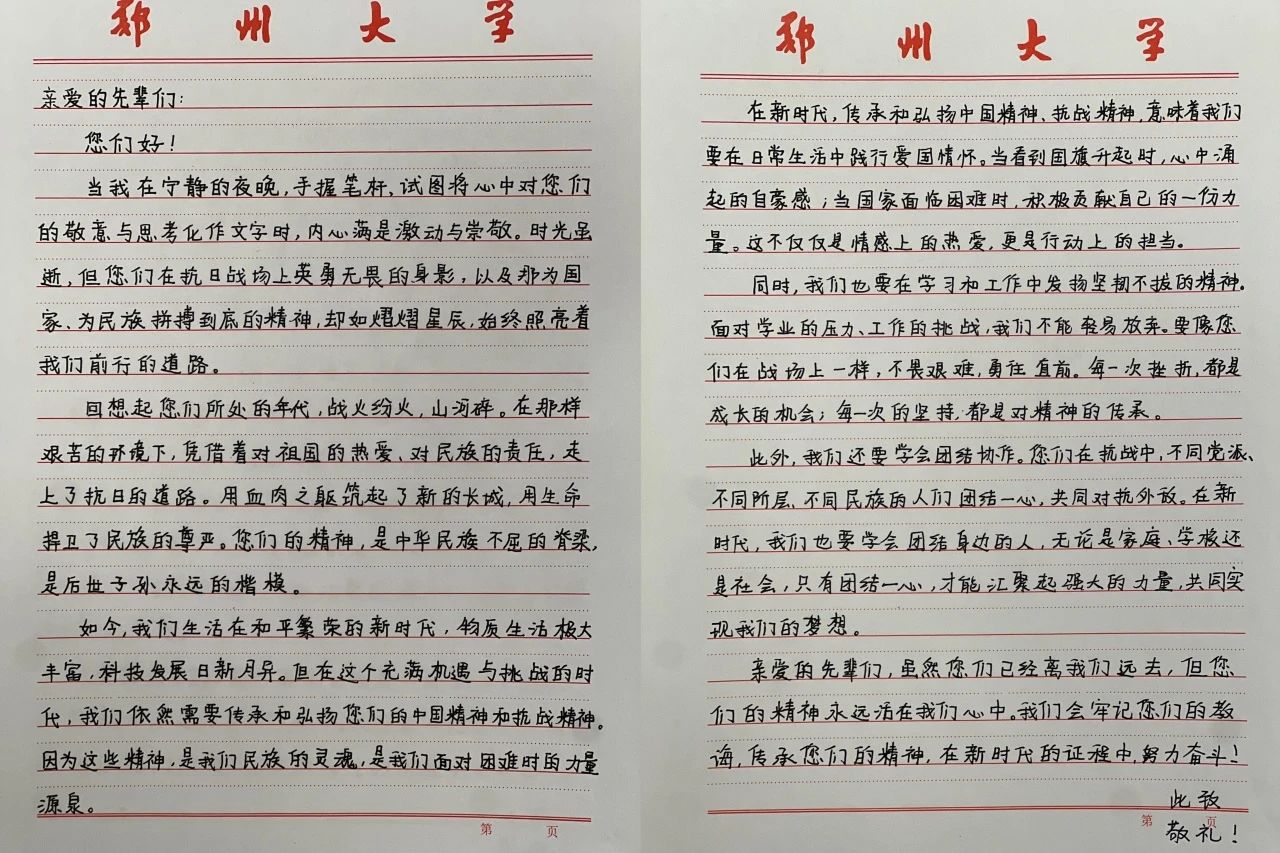 郑州大学
亲爱的先辈们:
您们好!
当我在宁静的夜晚,手握笔杆,试图将心中对您们
的敬意与思考化作文字时,内心满是激动与崇敬。时光虽
逝,但您们在抗日战场上英勇无畏的身影,以及那为国
家、为民族拼搏到底的精神,却如熠熠星辰,始终照亮着
我们前行的道路。
回想起您们所处的年代,战火纷火,山河碎。在那样
艰苦的环境下,凭借着对祖国的热爱、对民族的责任,走
上了抗日的道路。用血肉之躯筑起了新的长城,用生命
捍卫了民族的尊严。您们的精神,是中华民族不屈的脊梁,
是后世子孙永远的楷模。
如今,我们生活在和平繁荣的新时代,物质生活极大
丰富,科技发展日新月异。但在这个充满机遇与挑战的时
代,我们依然需要传承和弘扬您们的中国精神和抗战精神。
因为这些精神,是我们民族的灵魂,是我们面对困难时的力量
源泉。
第 页
郑州大学
在新时代,传承和弘扬中国精神、抗战精神,意味着我们
要在日常生活中践行爱国情怀。当看到国旗升起时,心中涌
起的自豪感;当国家面临困难时,积极贡献自己的一份力
量。这不仅仅是情感上的热爱,更是行动上的担当。
同时,我们也要在学习和工作中发扬坚韧不拔的精神。
面对学业的压力、工作的挑战,我们不能轻易放弃。要像您
们在战场上一样,不畏艰难,勇往直前。每一次挫折,都是
成长的机会;每一次的坚持,都是对精神的传承。
此外,我们还要学会团结协作。您们在抗战中,不同党派、
不同阶层、不同民族的人们团结一心,共同对抗外敌。在新
时代,我们也要学会团结身边的人,无论是家庭、学校还
是社会,只有团结一心,才能汇聚起强大的力量,共同实
现我们的梦想。
亲爱的先辈们,虽然您们已经离我们远去,但您
们的精神永远活在我们心中。我们会牢记您们的教
诲,传承您们的精神,在新时代的征程中,努力奋斗!
此致
第 页
敬礼!